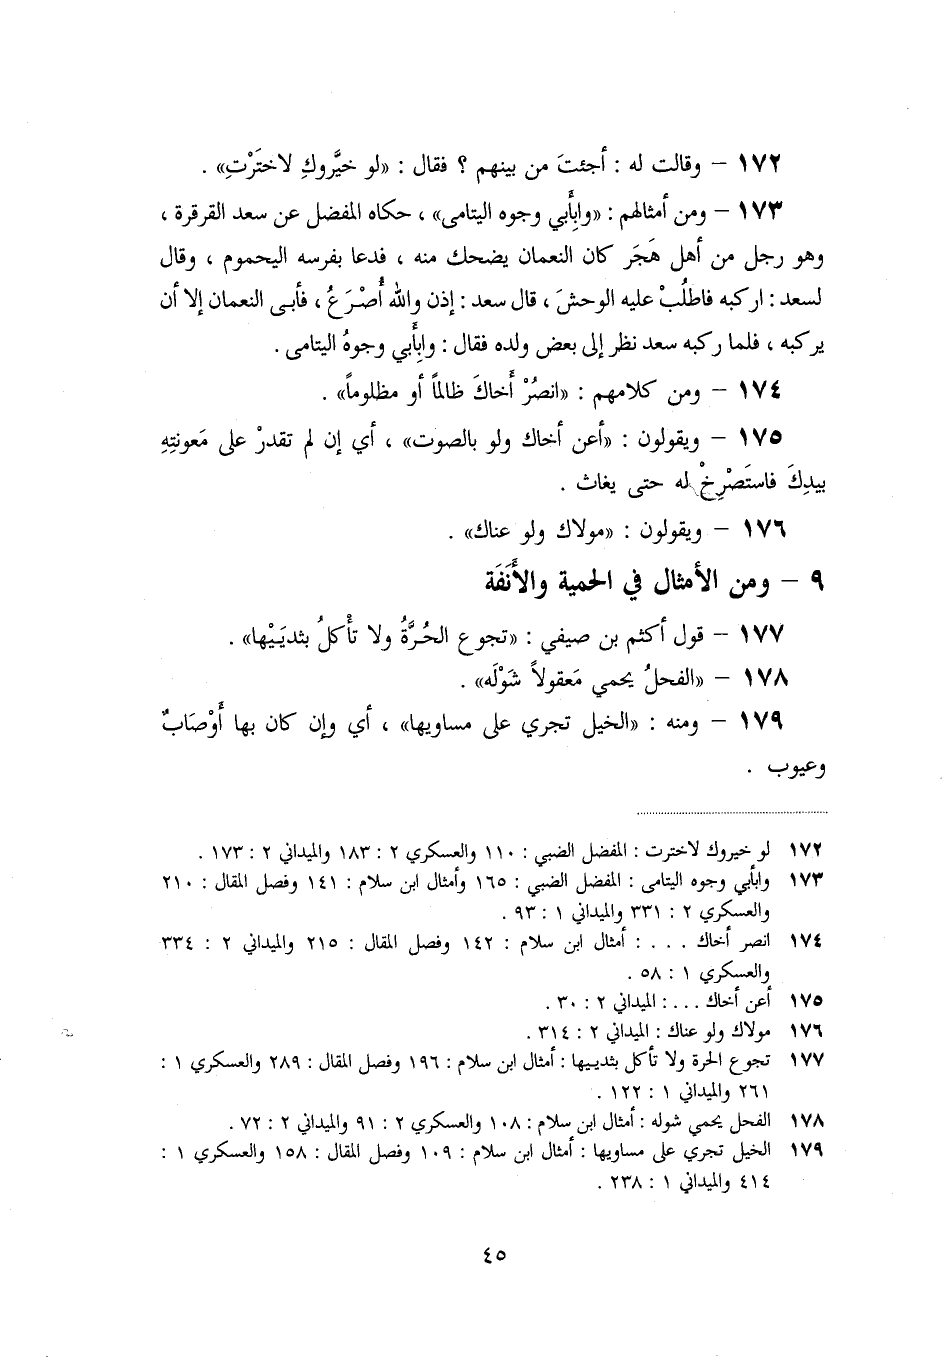 ١٧٢ – وقالت له : أجئتَ من بينهم ؟ فقال : «لو خيَّروكِ لاختَرْتِ» .
١٧٣ – ومن أمثالهم : «وابِأَبي وجوه اليتامى» ، حكاه المفضل عن سعد القرقرة ،
وهو رجل من أهل هَجَر كان النعمان يضحك منه ، فدعا بفرسه اليحموم ، وقال
لسعد : اركبه فاطلُبْ عليه الوحشَ ، قال سعد : إذن والله أُصْرَعُ ، فأبى النعمان إلا أن
يركبه ، فلما ركبه سعد نظر إلى بعض ولده فقال : وابِأَبي وجوهُ اليتامى .
١٧٤ – ومن كلامهم : «انصُرْ أَخاكَ ظالماً أو مظلوماً» .
١٧٥ – ويقولون : «أعن أخاك ولو بالصوت» ، أي إن لم تقدرْ على مَعونتِهِ
بيدِكَ فاستَصْرِخْ له حتى يغاث .
١٧٦ – ويقولون : «مولاك ولو عناك» .
٩ – ومن الأمثال في الحمية والأَنَفَة
١٧٧ – قول أكثم بن صيفي : «تجوع الحُرَّةُ ولا تأْكلُ بثديَيْها» .
١٧٨ – «الفحلُ يحمي مَعقولاً شَوْلَه» .
١٧٩ – ومنه : «الخيل تجري على مساويها» ، أي وإن كان بها أَوْصَابٌ
وعيوب .
١٧٢ لو خيروك لاخترت : المفضل الضبي : ١١٠ والعسكري ٢ : ١٨٣ والميداني ٢ : ١٧٣ .
١٧٣ وابأبي وجوه اليتامى : المفضل الضبي : ١٦٥ وأمثال ابن سلام : ١٤١ وفصل المقال : ٢١٠
والعسكري ٢ : ٣٣١ والميداني ١ : ٩٣ .
١٧٤ انصر أخاك . . . : أمثال ابن سلام : ١٤٢ وفصل المقال : ٢١٥ والميداني ٢ : ٣٣٤
والعسكري ١ : ٥٨ .
١٧٥ أعن أخاك . . . : الميداني ٢ : ٣٠ .
١٧٦ مولاك ولو عناك : الميداني ٢ : ٣١٤ .
١٧٧ تجوع الحرة ولا تأكل بثدييها : أمثال ابن سلام : ١٩٦ وفصل المقال : ٢٨٩ والعسكري ١ :
٢٦١ والميداني ١ : ١٢٢ .
١٧٨ الفحل يحمي شوله : أمثال ابن سلام : ١٠٨ والعسكري ٢ : ٩١ والميداني ٢ : ٧٢ .
١٧٩ الخيل تجري على مساويها : أمثال ابن سلام : ١٠٩ وفصل المقال : ١٥٨ والعسكري ١ :
٤١٤ والميداني ١ : ٢٣٨ .
٤٥